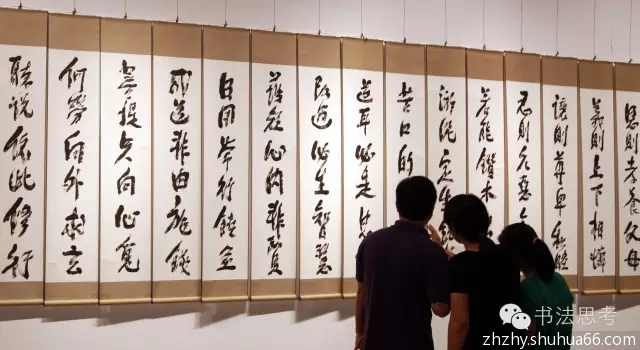 恩則孝養父母
義則上下相憐
讓則尊卑和睦
忍則惡
若能鑽木
淤泥定生
苦口的
逆耳必是忠
改過必生智慧
護短心內非賢
日用常行饒益
成道非由施錢
菩提只向心覓
何勞向外求玄
聽說依此修行
书法思考
zhzhy.shuhua66.com